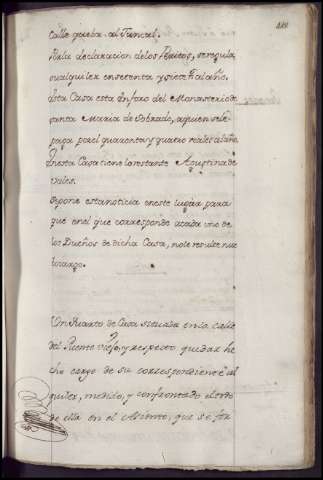 Calle que ba al Juncal.
Por la declaracion de los Peritos, se regula
su alquiler en setenta y siete Rs. al año.
Esta Casa esta en foro del Monasterio de
Santa Maria de Sobrado, a quien se le
paga por el quarenta y quatro reales al año.
En esta Casa tiene lo restante Agustina de
Se pone esta noticia en este lugar para
que en el que corresponde a cada uno de
los Dueños de dicha Casa, no le resulte nue
bo cargo.
Un Quarto de Casa situada en la calle
del Puente viejo, y respecto quedar he
cho cargo de su correspondiente al
quiler, medido, y confrontado el resto
de ella en el Asiento, que se for